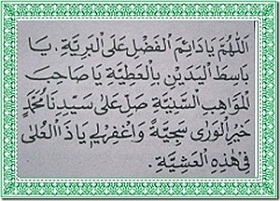 اَللّٰهُمَّ يَادَائِمَ الْفَضْلِ عَلَى الْبَرِيَّةِ، يَا
بَاسِطَ الْيَدَيْنِ بِالْعَطِيَّةِ يَا صَاحِبَ
الْمَوَاهِبِ السَّنِيَّةِ صَلِّ عَلٰى سَيِّدِنَا مُحَمَّدٍ
خَيْرِ الْوَرٰى سَجِيَّةً وَاغْفِرْ لِي يَاذَا الْعُلٰى
فِي هٰذِهِ الْعَشِيَّةِ.